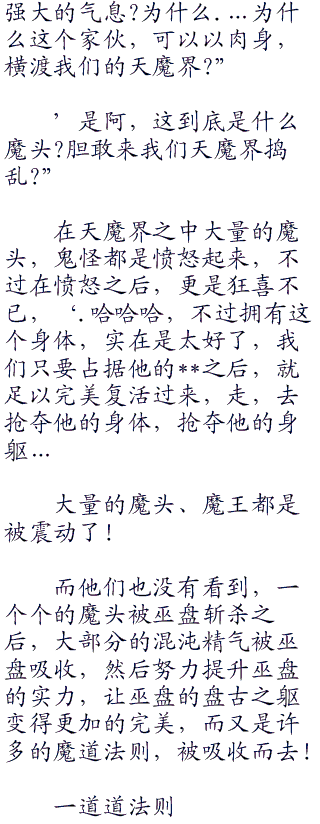 强大的气息?为什么....为什
么这个家伙，可以以肉身，
横渡我们的天魔界?”
’是阿，这到底是什么
魔头?胆敢来我们天魔界捣
乱?”
在天魔界之中大量的魔
头，鬼怪都是愤怒起来，不
过在愤怒之后，更是狂喜不
已，‘.哈哈哈，不过拥有这
个身体，实在是太好了，我
们只要占据他的**之后，就
足以完美复活过来，走，去
抢夺他的身体，抢夺他的身
躯...
大量的魔头、魔王都是
被震动了!
而他们也没有看到，一
个个的魔头被巫盘斩杀之
后，大部分的混沌精气被巫
盘吸收，然后努力提升巫盘
的实力，让巫盘的盘古之躯
变得更加的完美，而又是许
多的魔道法则，被吸收而去!
一道道法则